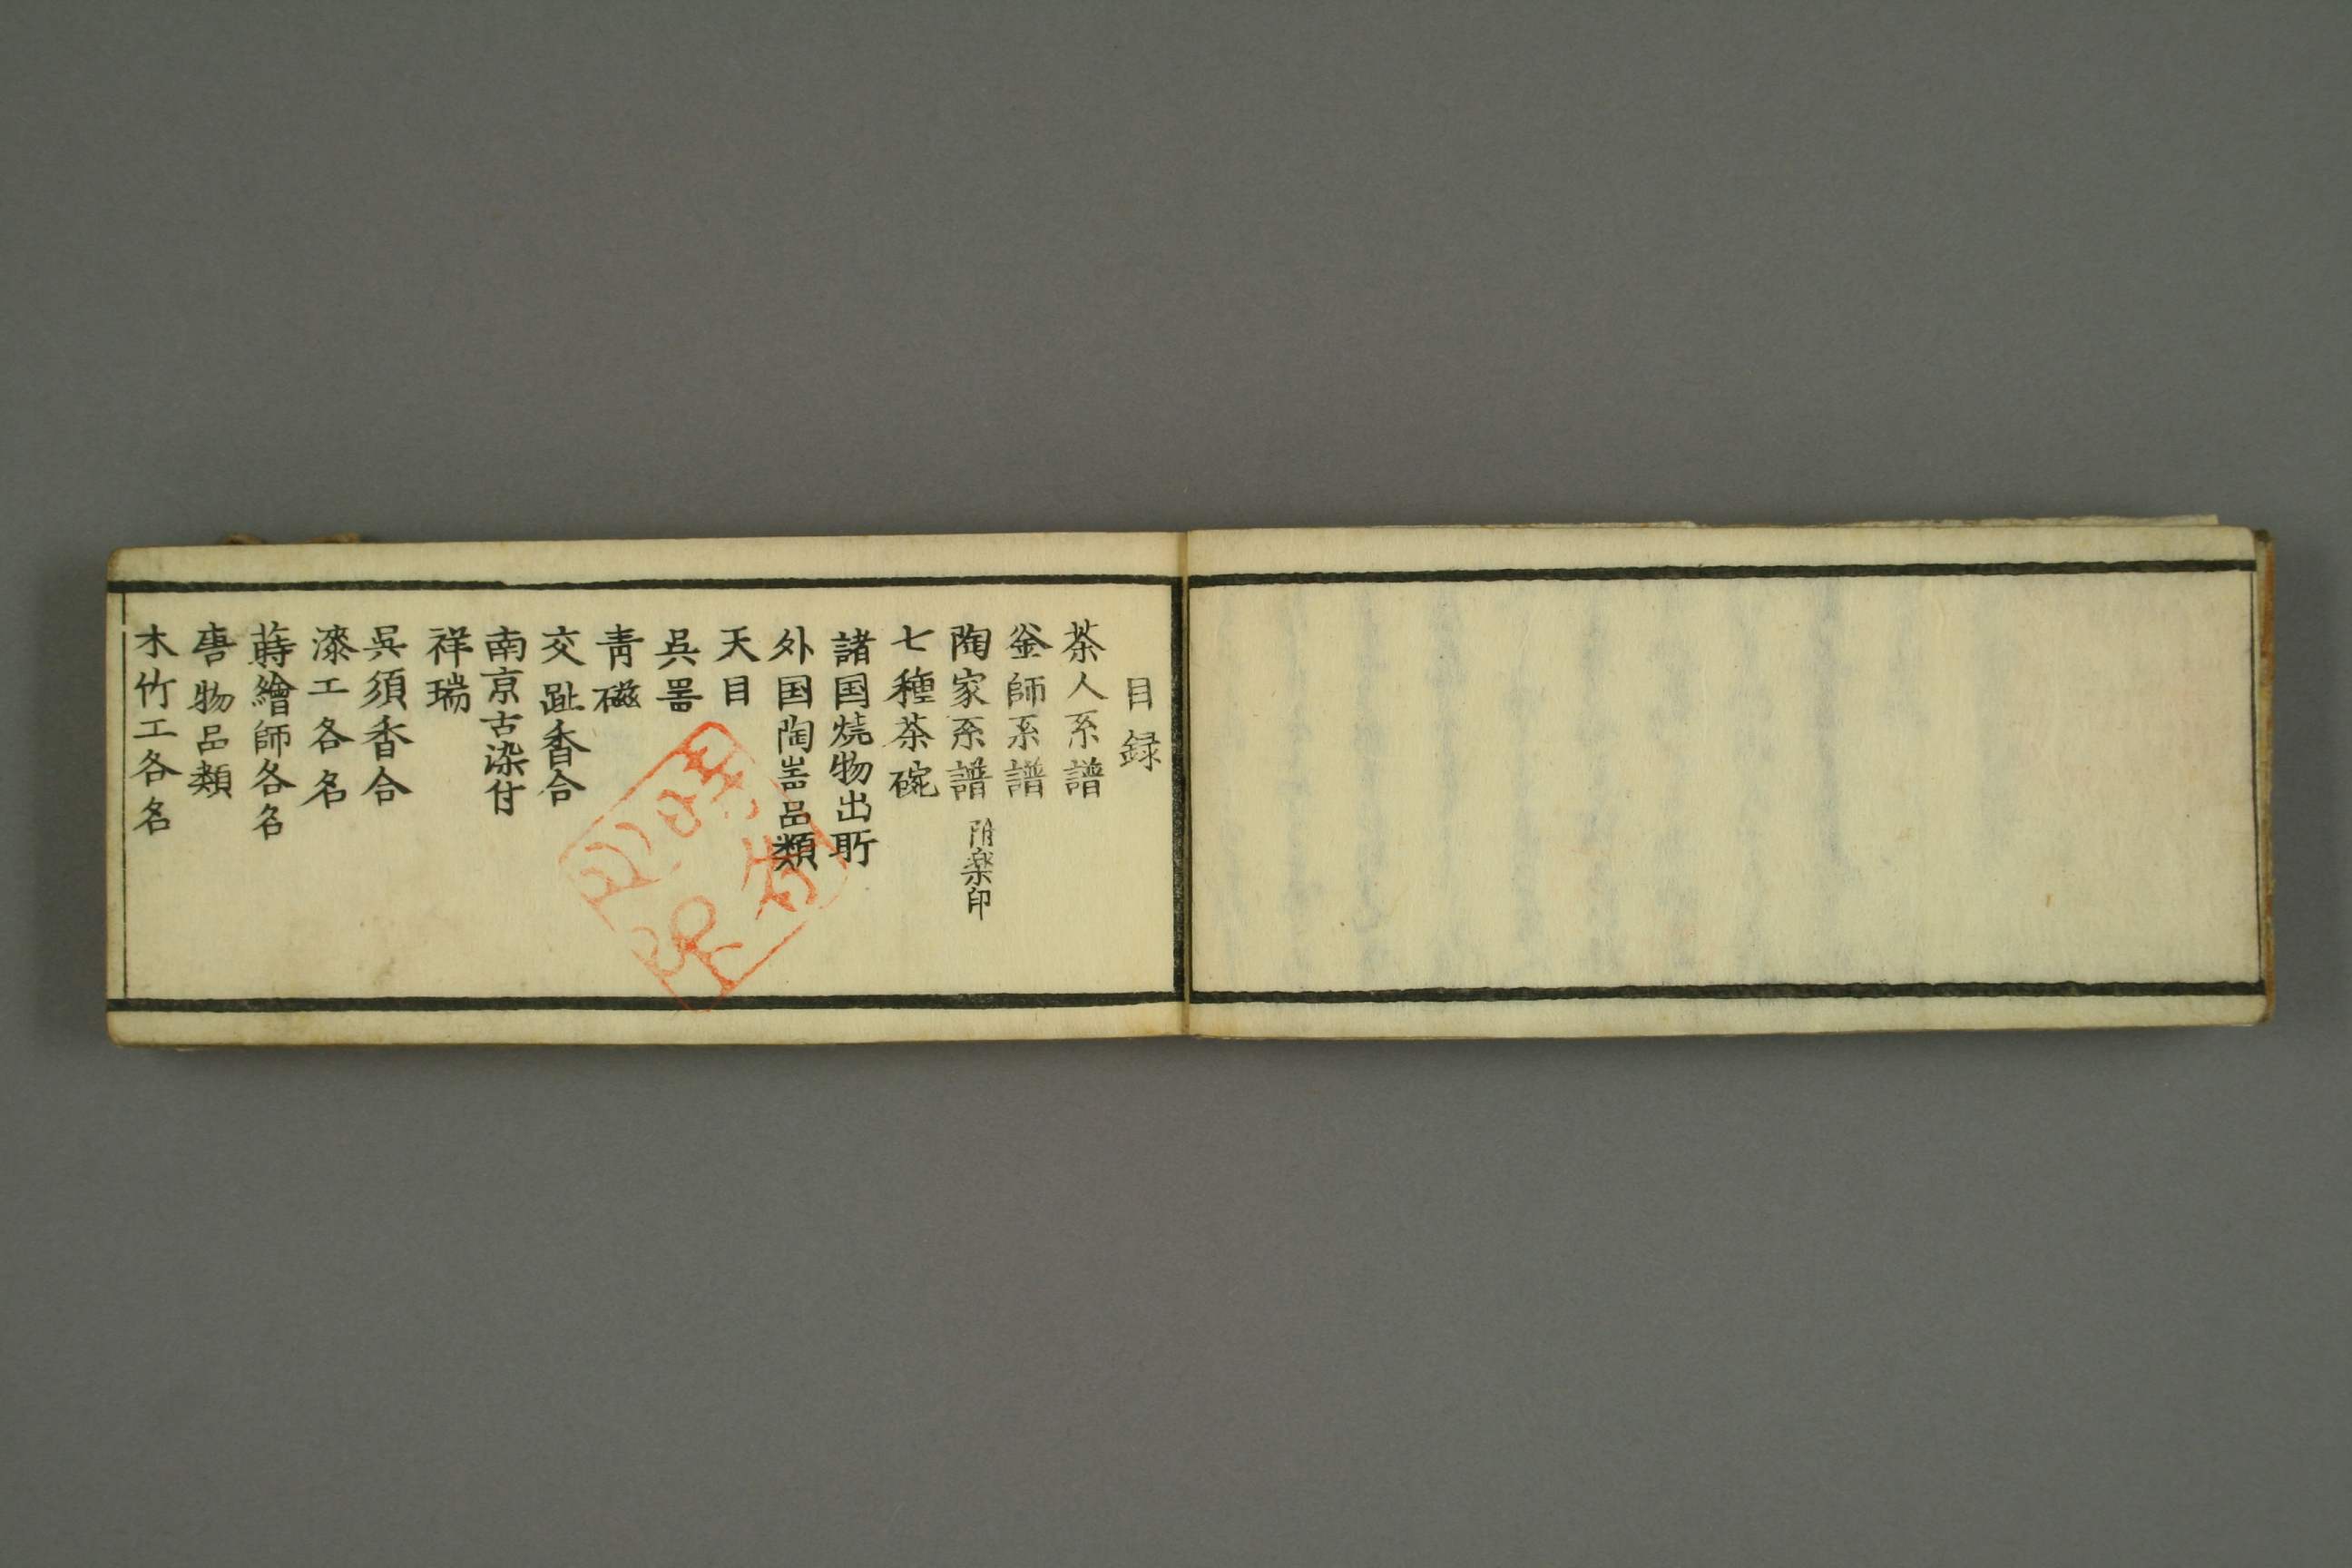 目録
茶人系譜
釜師系譜
陶家系譜 附楽印
七種茶碗
諸国焼物出所
外国陶器品類
天目
呉器
青磁
交趾香合
南京古染付
祥瑞
呉須香合
漆工各名
蒔繪師各名
唐物品類
木竹工各名